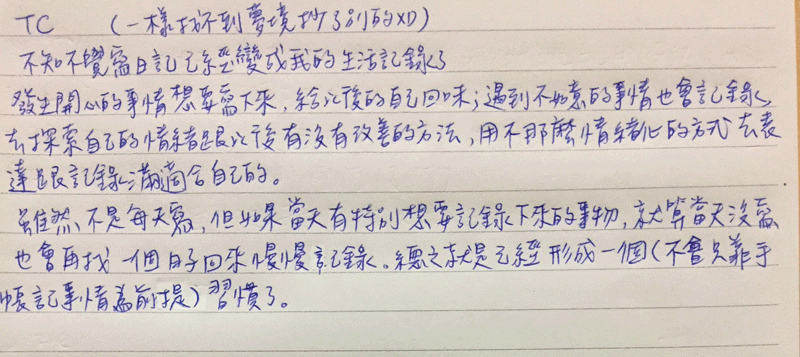 TC (一樣找不到夢境抄了別的XD)
不知不覺寫日記已經變成我的生活記錄了
發生開心的事情想要寫下來，給以後的自己回味；遇到不如意的事情也會記錄，
去探索自己的情緒跟以後有沒有改善的方法，用不那麼情緒化的方式去表
達跟記錄滿適合自己的。
雖然不是每天寫，但如果當天有特別想要記錄下來的事物，就算當天沒寫
也會再找一個日子回來慢慢記錄。總之就是已經形成一個(不會只靠手
帳記事情為前提)習慣了。